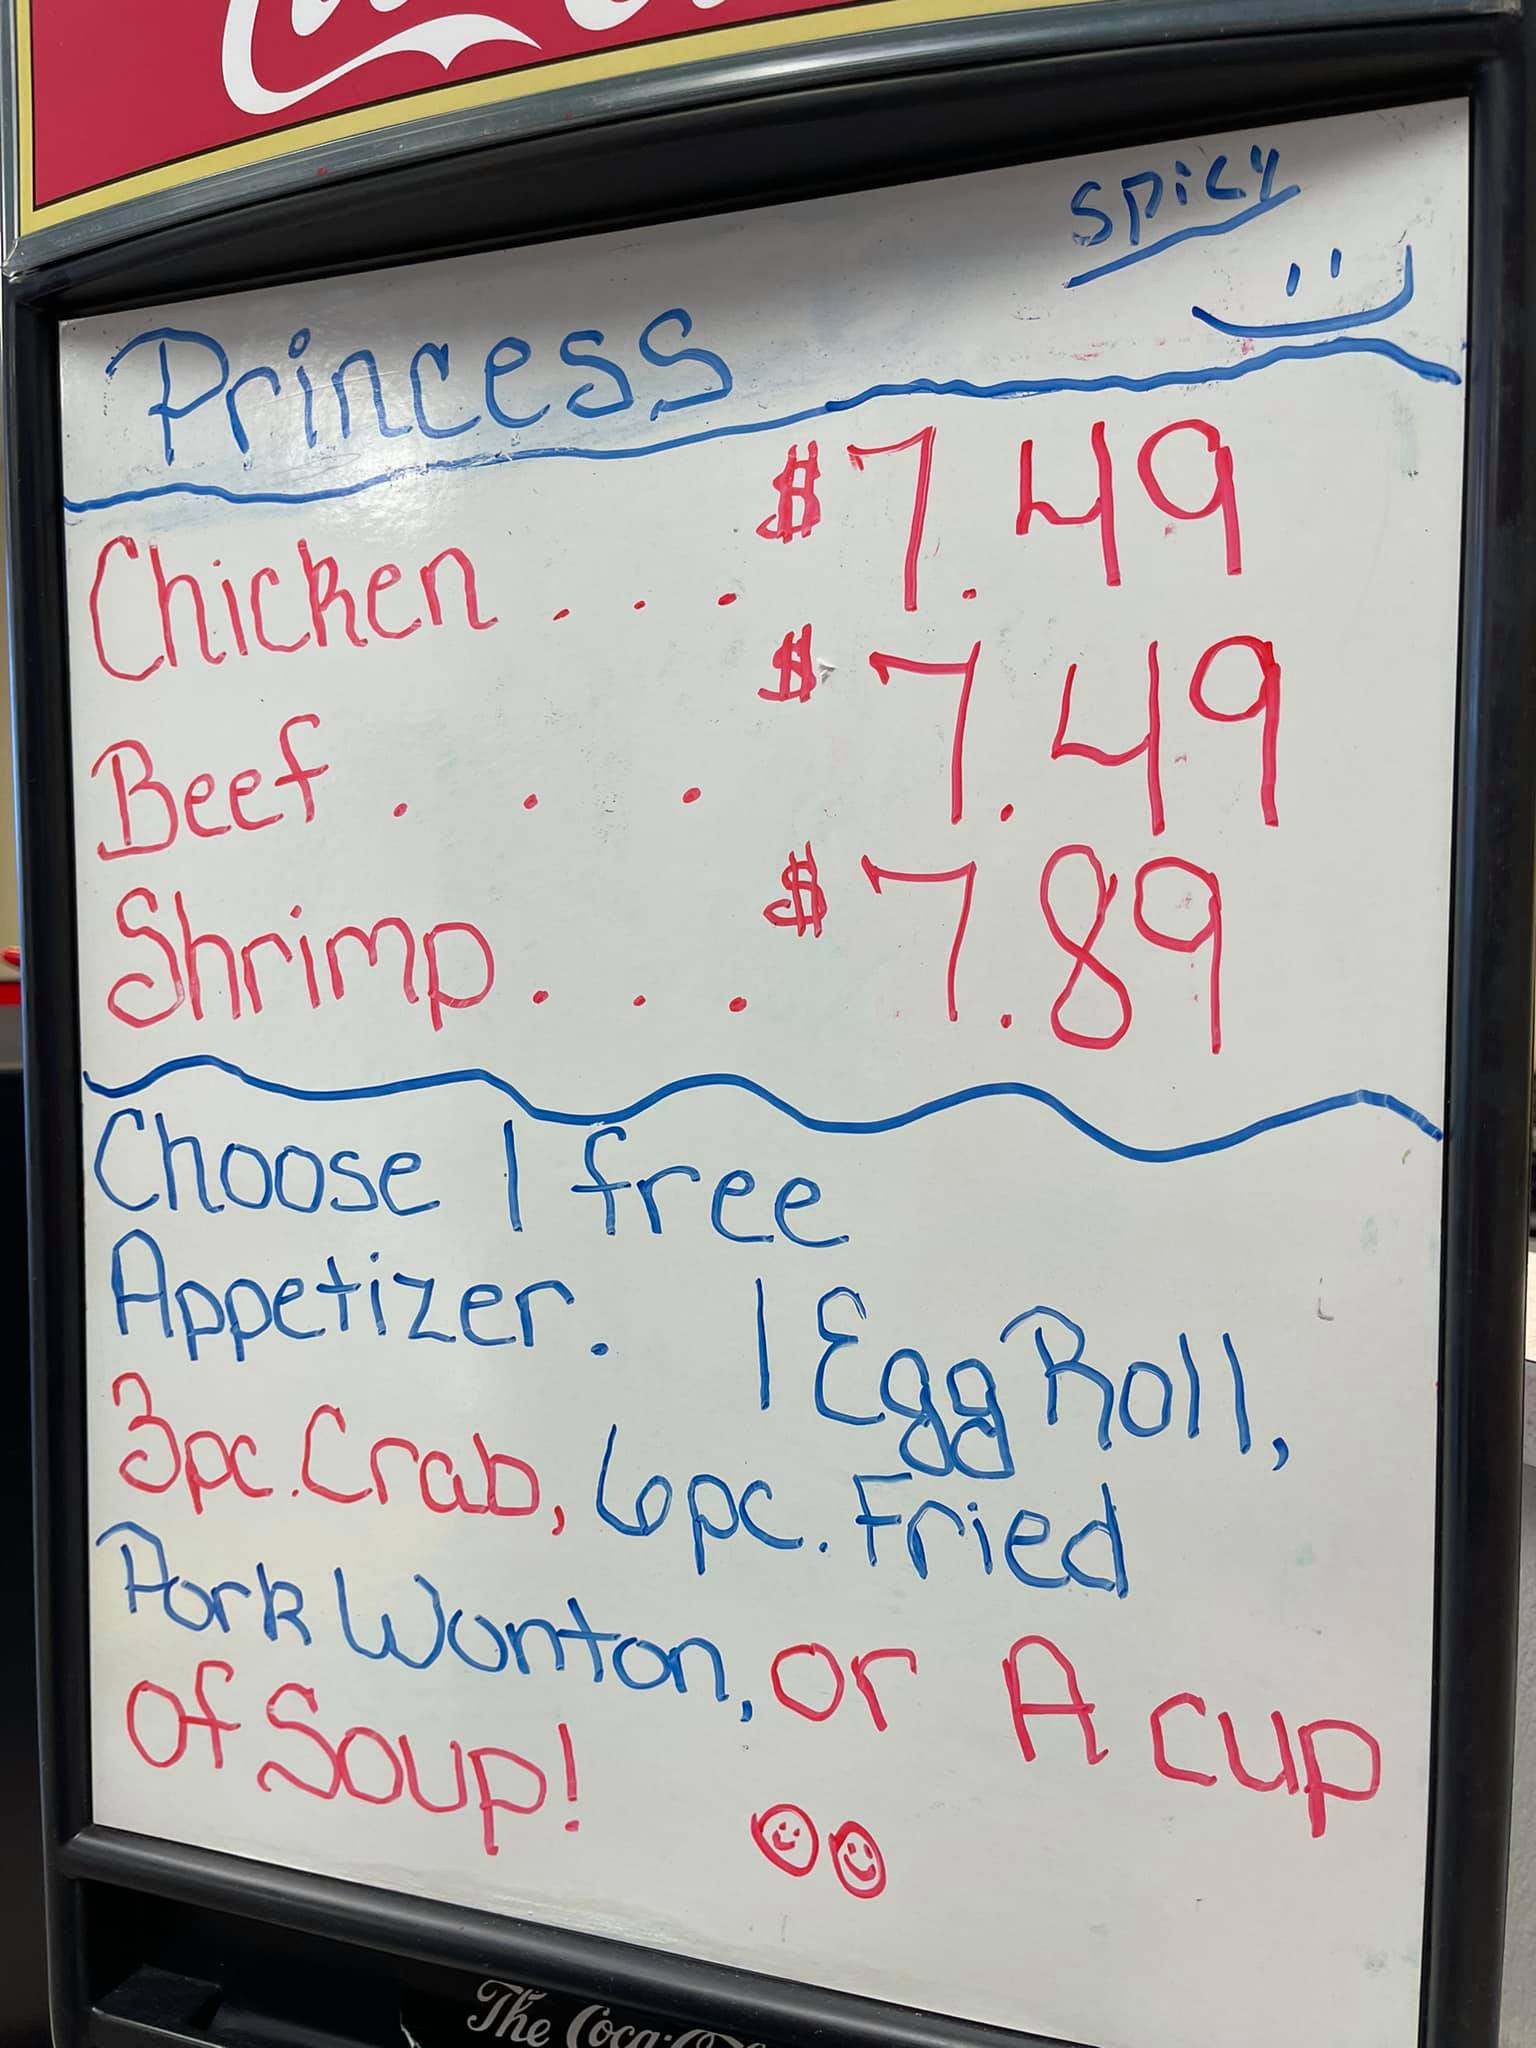 Spicy
Princess
Chicken . . . $7.49
Beef . . . $7.49
Shrimp . . . $7.89
Choose 1 free
Appetizer. 1 Egg Roll,
3pc. Crab, 6pc. Fried
Pork Wonton, or A cup
of Soup!
The Coca-Co